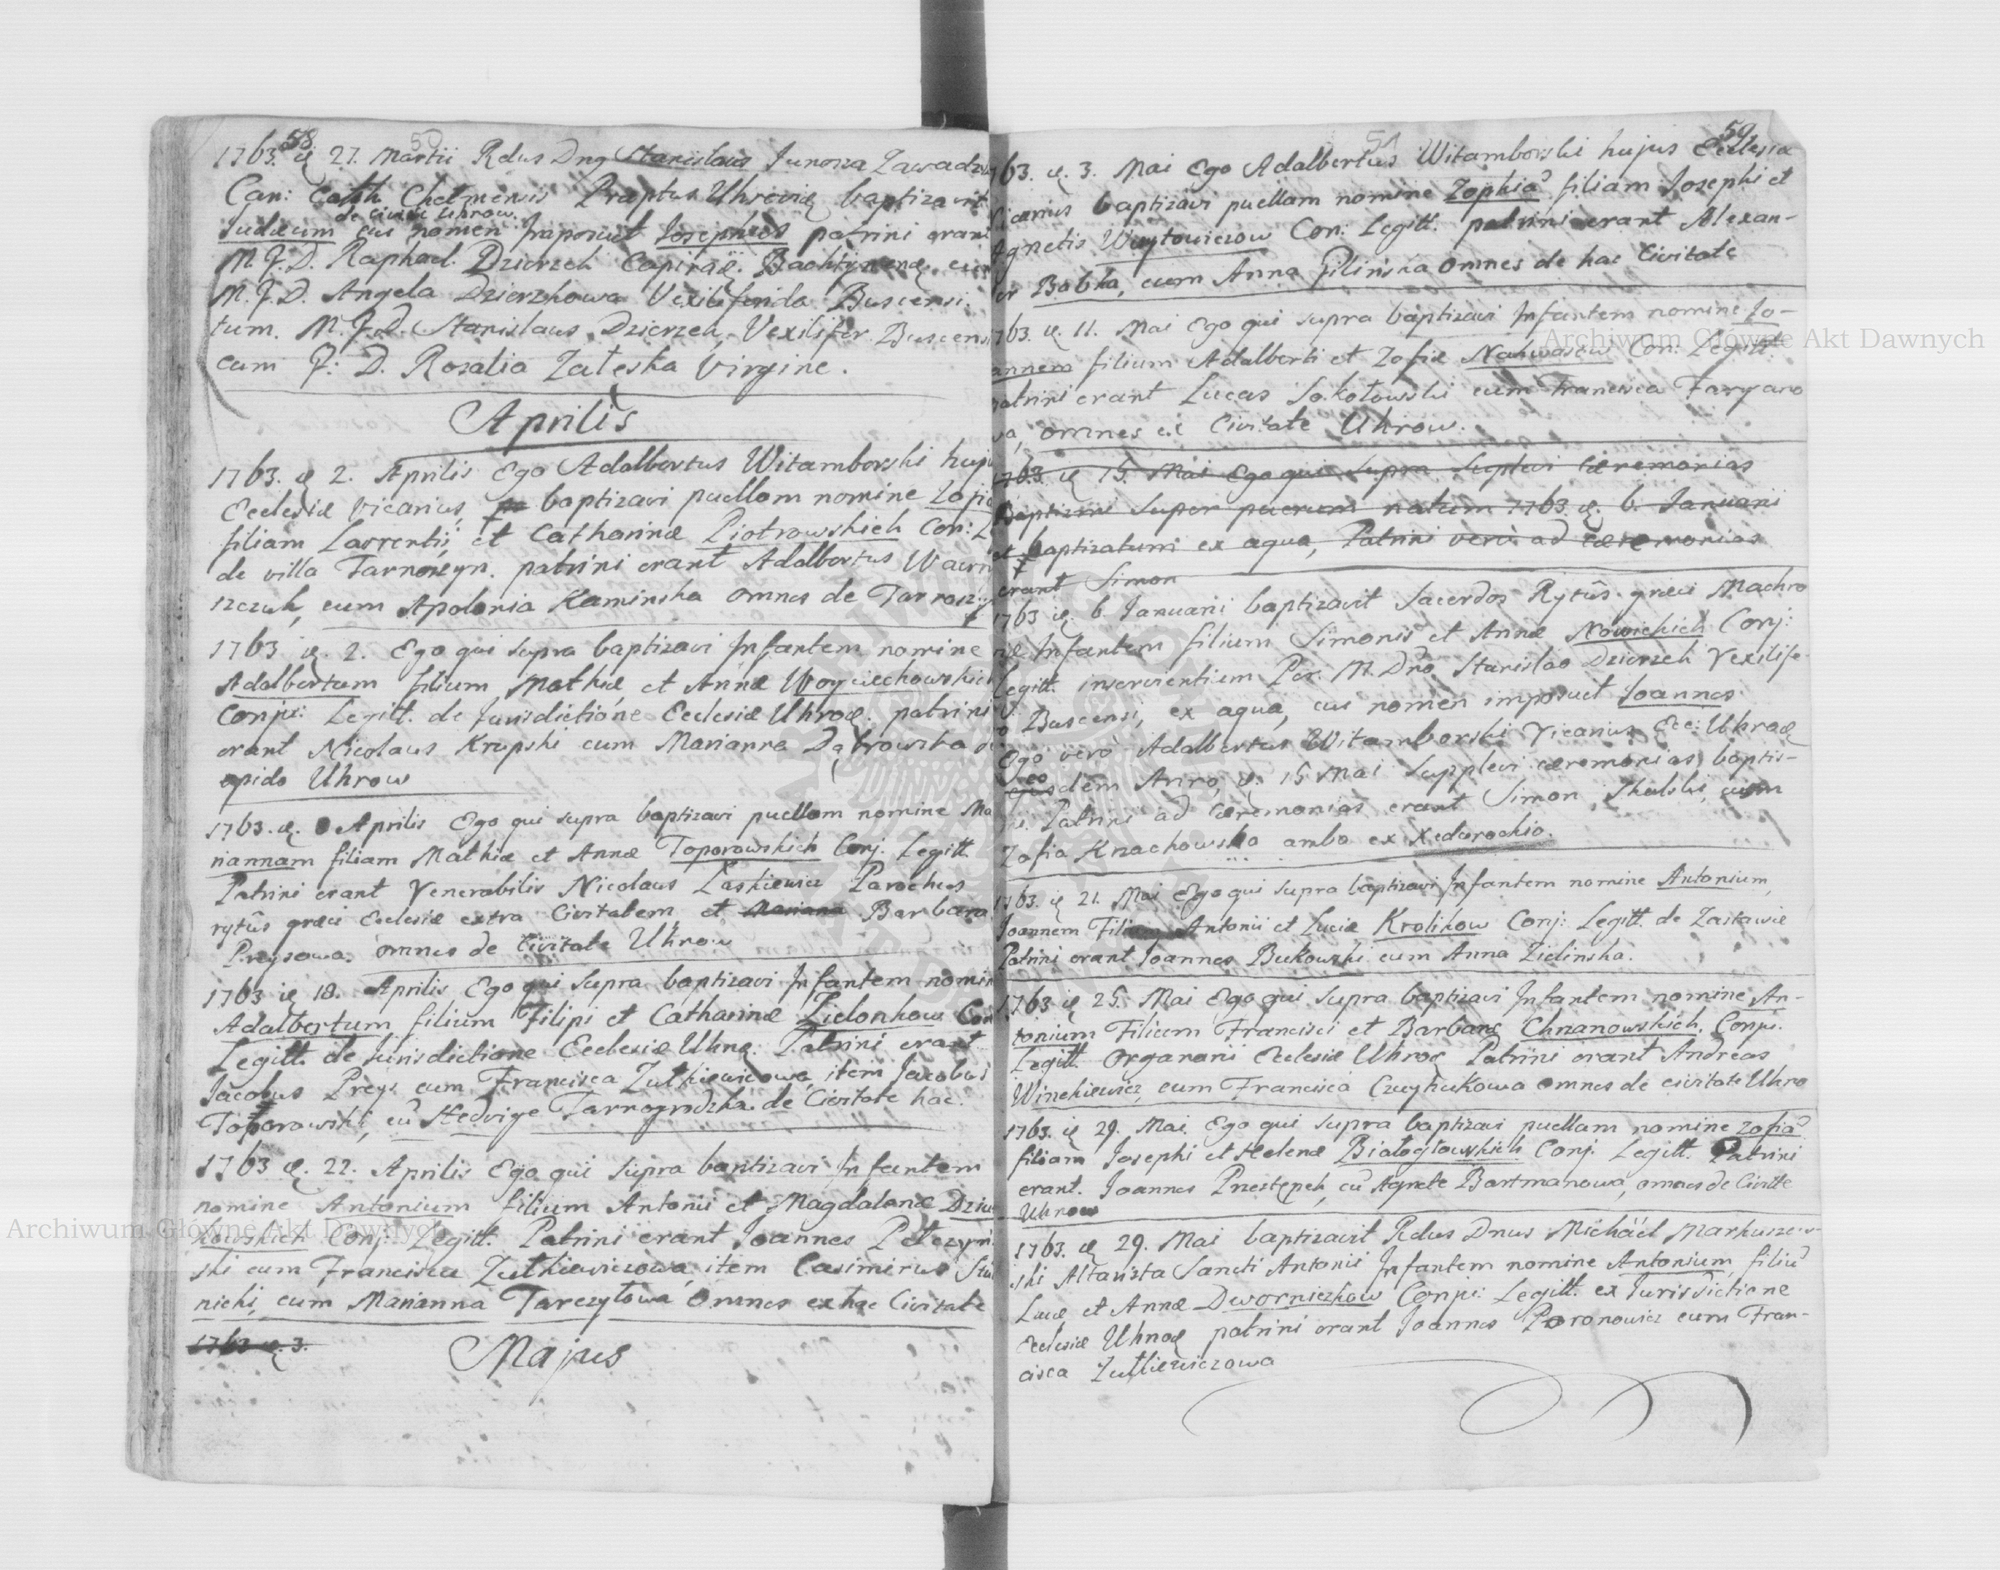 58
50
1763. ię 27. Martii Rdus Dnq Stanislaus Junosza Zawadz
Can: Cath Chelmensis Praptus Uhrovię baptizavit
de Civitte Uhrow.
Judæum cui nomen Imposuit Josephus patrini erant
M. J. D. Raphael Dzierzek
M. J. D. Angela Dzierzkowa Vexiliferida Buscensi.
tum. M. J. D. Stanislaus Dzierzek Vexilifer Buscens
cum J: D. Rozalia Zaleska Virgine.
Aprilis
1763. ię 2. Aprilis Ego Adalbertus Witamborski huju
Ecclesiæ Vicarius, baptizavi puellam nomine Zofia
filiam Laurentii et Catharinæ Piotrowskich Con: L
de villa Tarnoszyn. patrini erant Adalbertus Wawr
szczuk, cum Apolonia Kaminska omnes de Tarnosz
1763 ię. 2. Ego qui supra baptizavi Infantem nomine
Adalbertum filium Mathiæ et Annæ Woyciechowskic
Conju: Legitt. de Jurisdictióne Ecclesiæ Uhroę. patrini
erant Nicolaus Krupski cum Marianna Dąbrowska
opido Uhrow
1763. ię. Aprilis Ego qui supra baptizavi puellam nomine Ma
riannam filiam Mathiæ et Annæ Toporowskich Conj. Legitt
Patrini erant Venerabilis Nicolaus Laskiewicz Parochus
rytûs græci Ecclesiæ extra Civitatem et Mariana Barbara
Preysowa. omnes de Civitate Uhrow
1763 ię 18. Aprilis Ego qui Supra baptizavi Infantem nomin
Adalbertum filium Filipi et Catharinæ Zielonkow Con
Legitt. de Jurisdictione Ecclesiæ Uhnę. Patrini erant
Jacobus Preys cum Francisca Zutkiewiczowa, item Jacobus
Toporowski, cũ Hedvige Tarnogrodzka. de Civitate hac.
1763 ię. 22. Aprilis Ego qui Supra baptizavi Infantem
nomine Antonium filium Antonii et Magdalenæ Dziu
kowskich Conj: Legitt. Patrini erant Joannes Pełczyn
ski cum Francisca Zutkiewiczowa, item Casimirus Stu
nicki, cum Marianna Tarczyłowa Omnes ex hac Civitate
1763 ię. 3.
Majus
59.
51
763. ię. 3. Mai Ego Adalbertus Witamborski hujus Ecclesiæ
Vicarius baptizavi puellam nomine Zophiã filiam Josephi et
Agnetis Wuytowiczow Con: Legitt. patrini erant Alexan-
er Bobka, cum Anna Gilinska omnes de hac Civitate
1763. ię. 11. Mai Ego qui supra baptizavi Infantem nomine Jo-
annem filium Adalberti et Zofiæ Nahwasow Con: Legitt.
patrini erant Lucas Sokołowski cum Francisca Faryaro
wa, omnes ex Civitate Uhrow.
1763 ię 15. Mai Ego qui supra Suplevi Cæremonias
Baptismi Super puerum natum 1763 ię. 6. Januarii
et baptizatum ex aqua, Patrini verò ad cæremonias
erant Simon
1763 ię. 6. Januarii baptizavit Sacerdos Rytûs græci Machno
Infantem filium Simonis et Annæ Nowickich Conj:
Legitt. inservientium Per: M. Dño. Stanislao Dzierzek Vexilife-
o Buscensi, ex aqua, cui nomen imposuit Joannes.
Ego vero Adalbertus Witamborski Vicarius Ecc: Uhroæ
eodem Anno, ię. 15 Mai Supplevi cæremonias baptis-
mi. Patrini ad cæremonias erant Simon Skulski, cum
Zofia Knachowska ambo ex Xedorochio.
1763. ię 21. Mai Ego qui supra baptizavi Infantem nomine Antonium,
Joannem Filium Antonii et Luciæ Krolikow Conj: Legitt. de Zastawie
Patrini erant Joannes Bukowski cum Anna Zielinska.
1763 ię 25. Mai Ego qui Supra baptizavi Infantem nomine An-
tonium Filium Francisci et Barbaræ Chnanowskich. Conju.
Legitt Organarii Ecclesiæ Uhroę Patrini erant Andreas
Winckiewicz, cum Francisca Czuyhukowa omnes de civitate Uhro
1763. ię 29. Mai. Ego qui supra baptizavi puellam nomine Zofiã
filiam Josephi et Helenæ Białogłowskich Conj. Legitt. Patrini
erant. Joannes Przestępek, cũ Agnete Bartmanowa, omnes de Civitte
Uhrow
1763. ię 29. Mai baptizavit Rdus Dnus Michäel Markusze-
ski Altarista Sancti Antonii Infantem nomine Antonium, filiũ
Lucæ et Annæ Dworniczkow Conju: Legitt. ex Jurisdictione
Ecclesiæ Uhnoę patrini erant Joannes Poronowicz cum Fran-
cisca Zutkiewiczowa
Archiwum Główne Akt Dawnych
Archiwum Główne Akt Dawnych